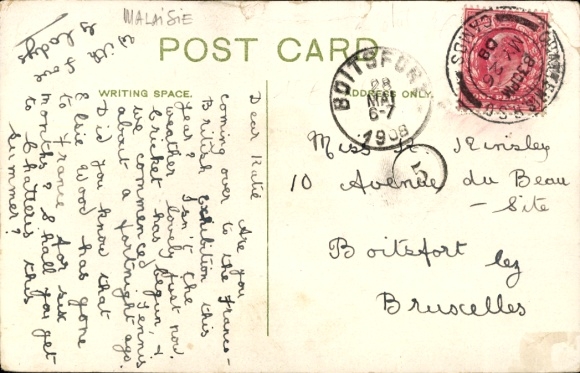 MALAISIE
POST CARD.
WRITING SPACE.
ADDRESS ONLY.
Dear Katie
Are you
coming over to the Franco-
British exhibition this
year? Isn't the
weather lovely just now.
Cricket has begun, &
we commenced Tennis
about a fortnight ago.
Did you know that
Elsie Wood has gone
to France for six
months? Shall you get
to Chatteris this
summer?
Miss
10 Avenue du Beau
- Site
Boitsfort lez
Bruxelles
BOITSFORT
28
MAI
6-7
1908
5
8.30PM
MY 26
08